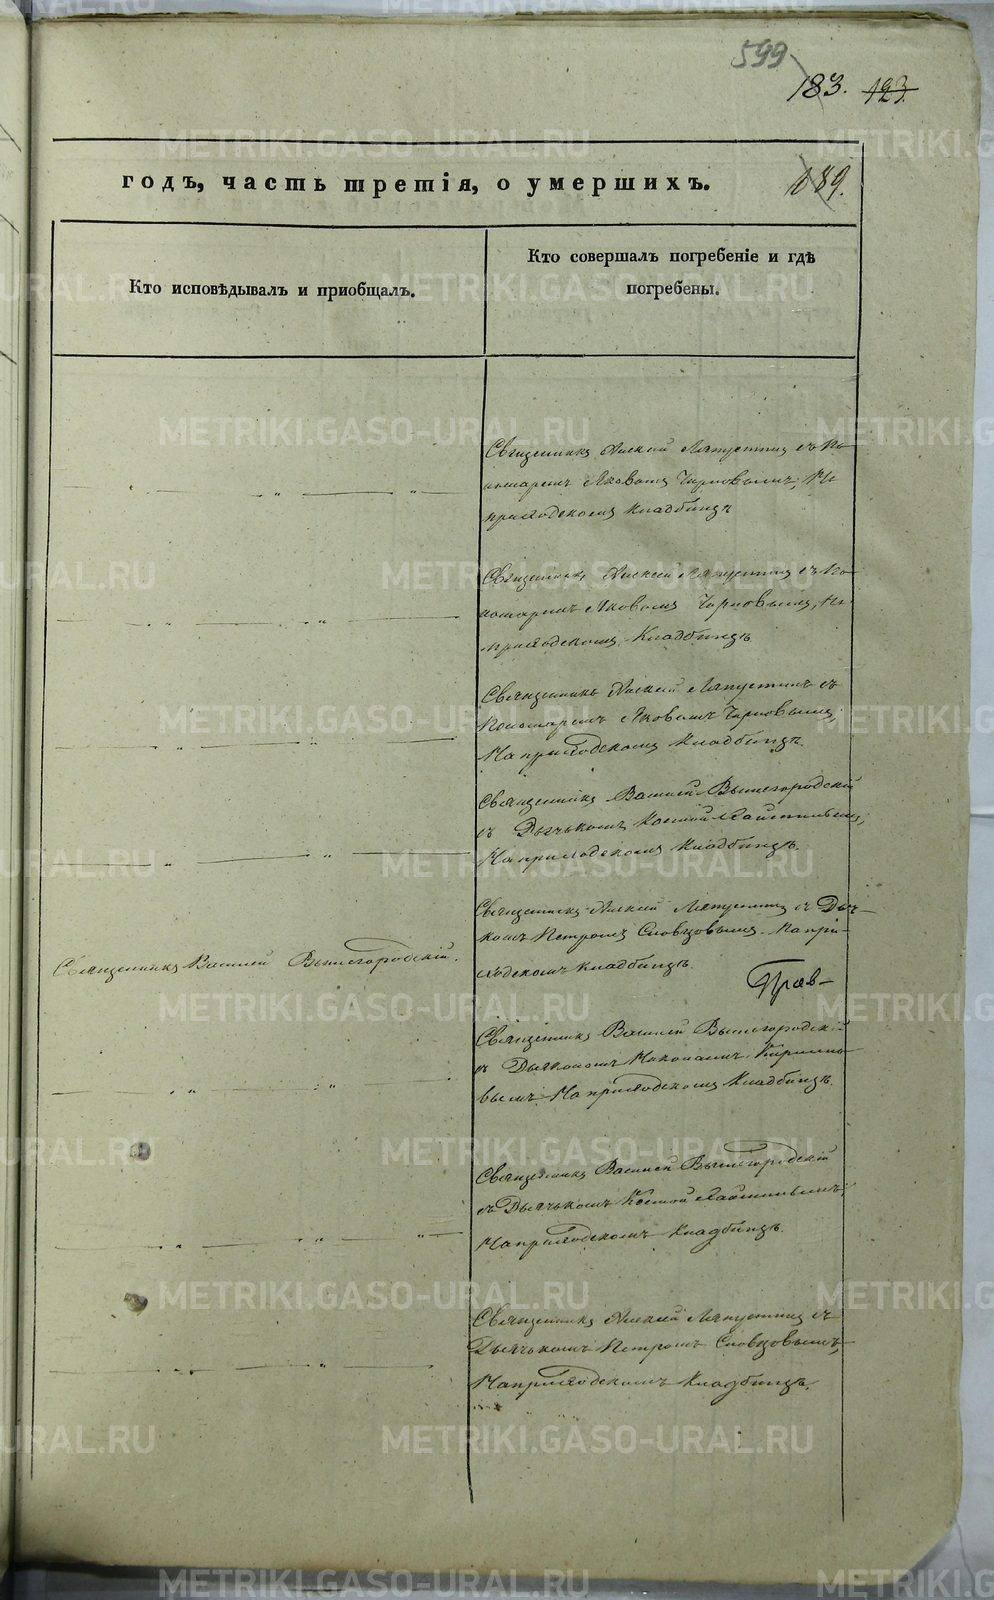 599
183. 123.
годъ, часть третія, о умершихъ.
189.
Кто исповѣдывалъ и приобщалъ.
Кто совершалъ погребеніе и гдѣ
погребены.
Священникъ Алексій Ляпустинъ съ По-
номаремъ Яковомъ Черновымъ, На
приходскомъ кладбищѣ
Священникъ Алексій Ляпустинъ съ По-
номаремъ Яковомъ Черновымъ, На
приходскомъ Кладбищѣ
Священникъ Алексій Ляпустинъ съ
Пономаремъ Яковомъ Черновымъ,
На приходскомъ Кладбищѣ.
Священникъ Василей Вышегородскій
съ Дьячькомъ Космой
На приходскомъ Кладбищѣ.
Священникъ Алексій Ляпустинъ съ Дьяч-
комъ Петромъ Словцовымъ На при-
ходскомъ кладбищѣ.
Священникъ Василей Вышегородскій.
Прав-
Священникъ Василей Вышегородскій
съ Дьякономъ
вымъ На приходскомъ Кладбищѣ.
Священникъ Василей Вышегородскій
съ Дьячькомъ Космой
На приходскомъ Кладбищѣ.
Священникъ Алексій Ляпустинъ съ
Дьячькомъ Петромъ Словцовымъ,
На приходскомъ Кладбищѣ.
METRIKI.GASO-URAL.RU